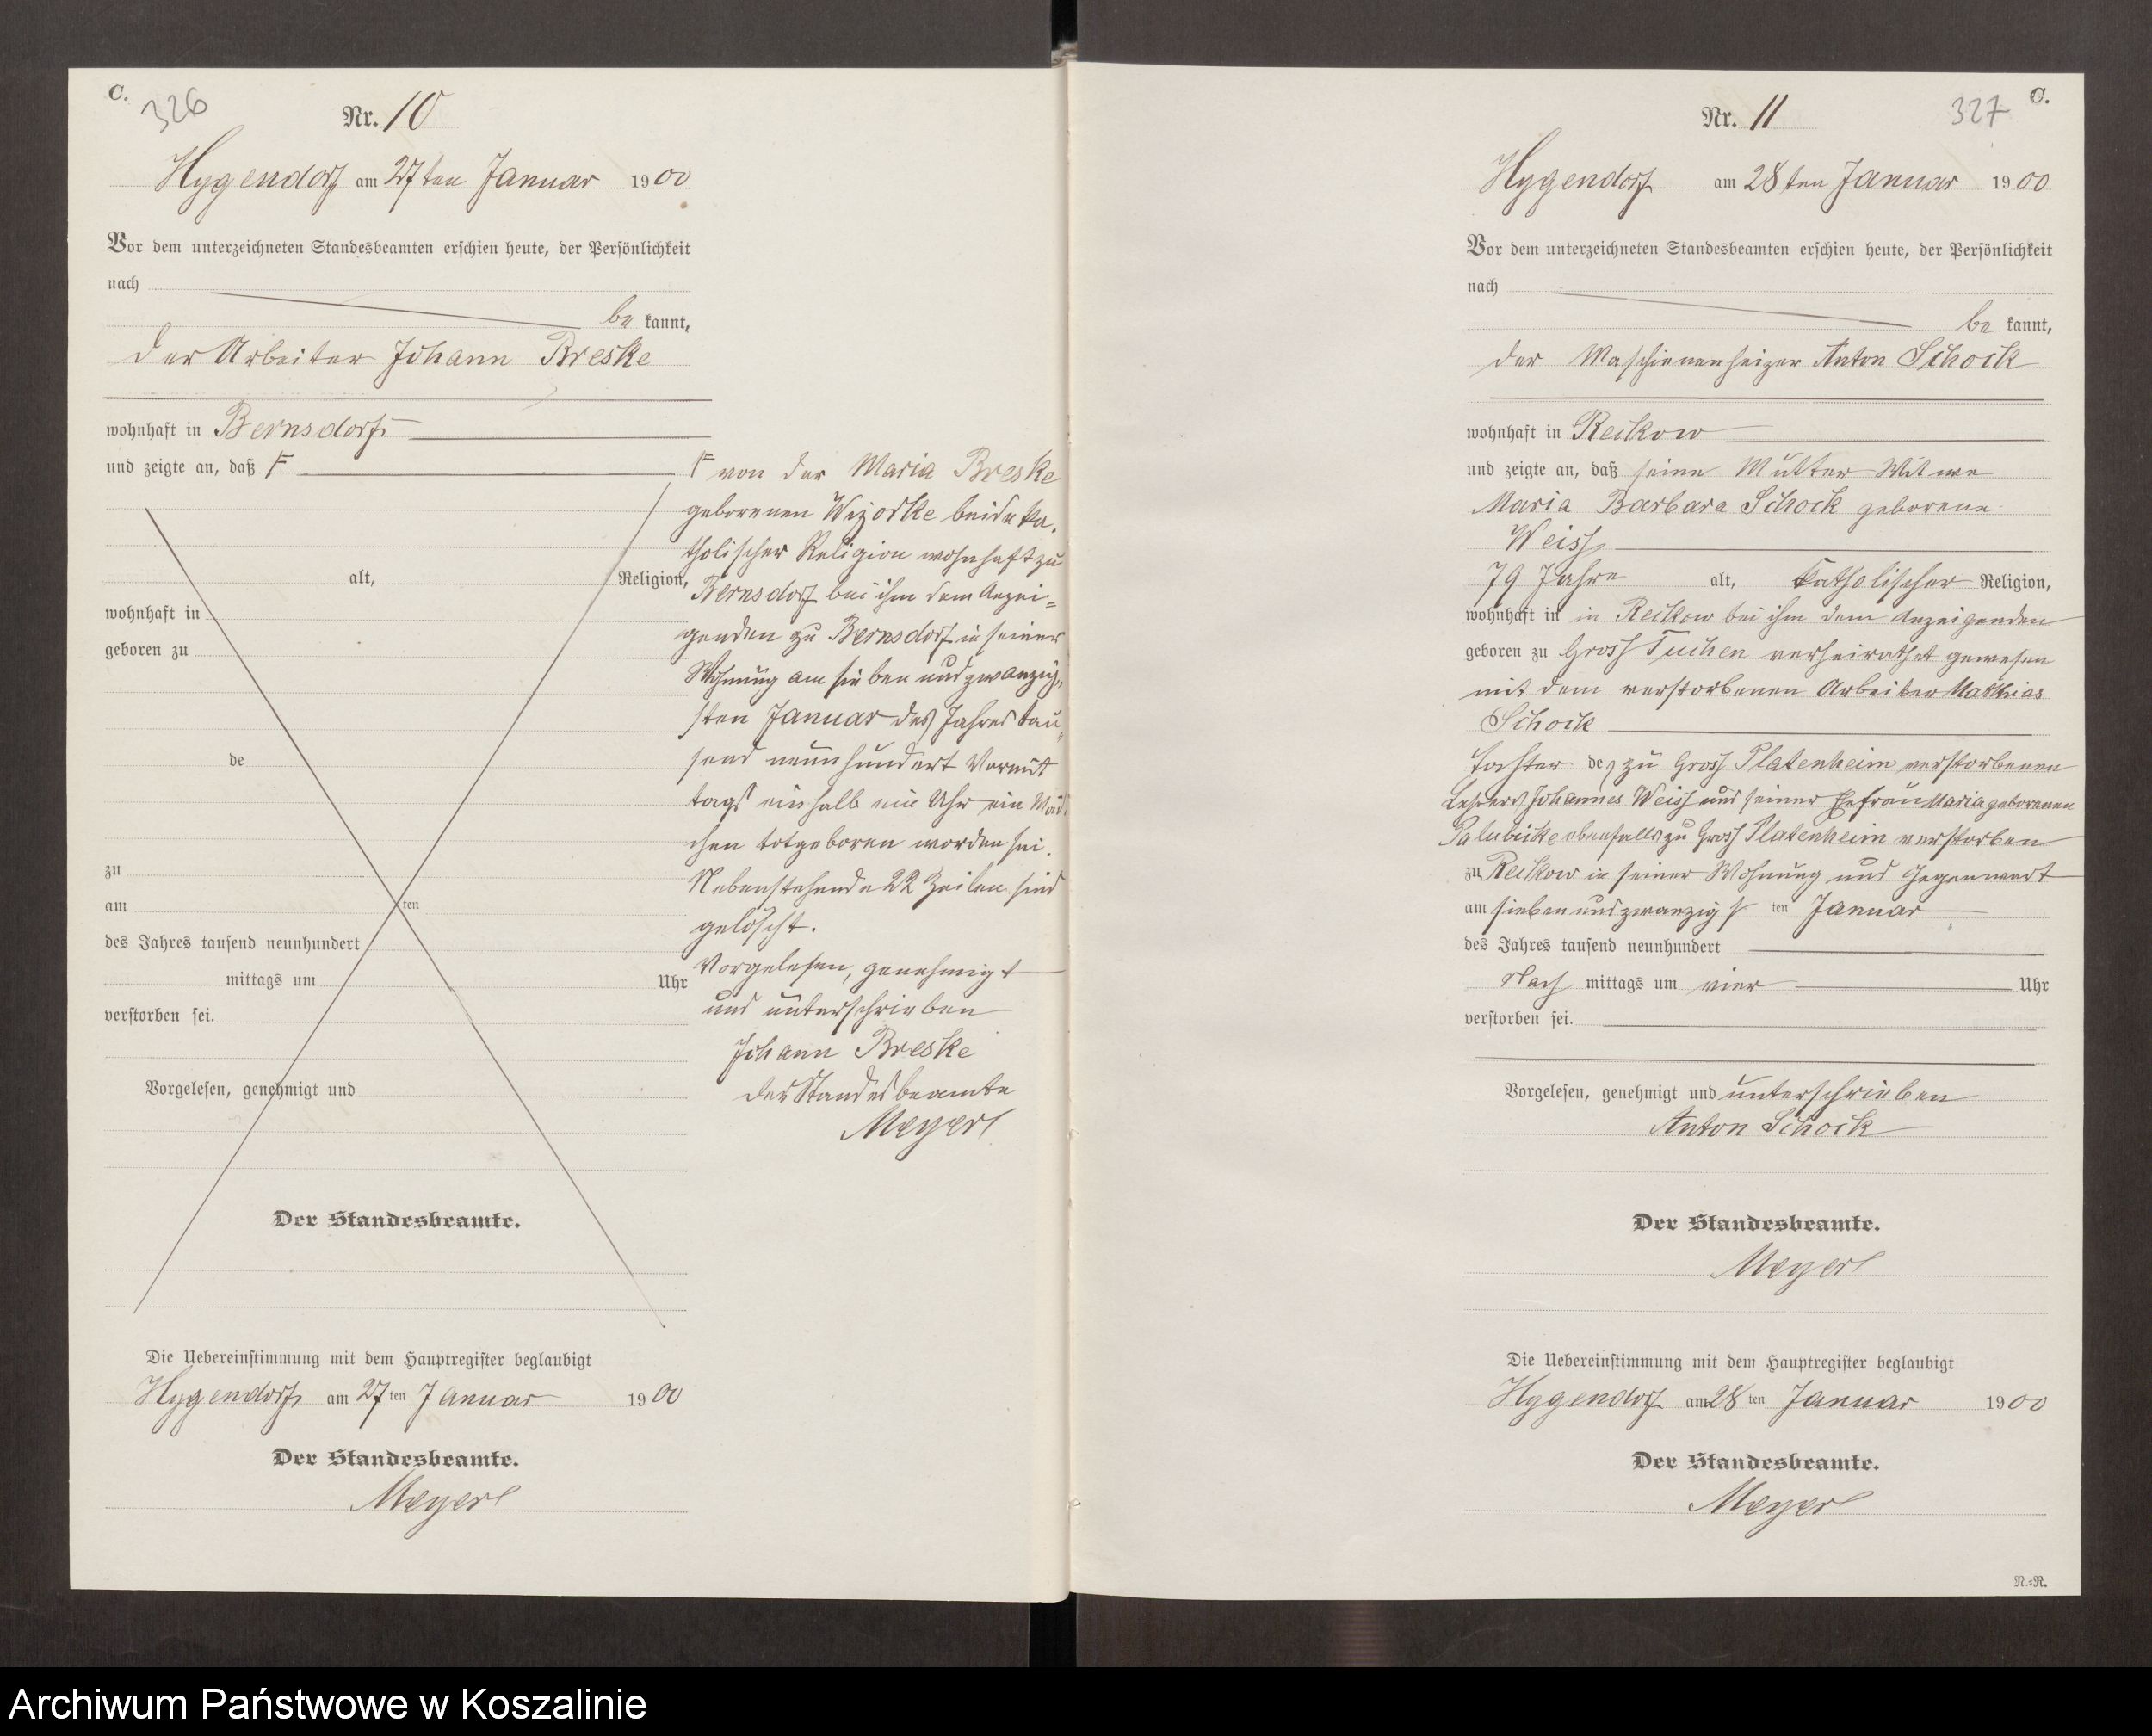 C.
326
Nr. 10
Hygendorf am 27ten Januar 1900
Vor dem unterzeichneten Standesbeamten erschien heute, der Persönlichkeit
nach
be kannt,
der Arbeiter Johann Breske
wohnhaft in Bernsdorf
und zeigte an, daß F
alt, Religion,
wohnhaft in
geboren zu
de
zu
am ten
des Jahres tausend neunhundert
mittags um Uhr
verstorben sei.
Vorgelesen, genehmigt und
Der Standesbeamte.
F von der Maria Breske
geborenen Wizorke beide ka-
tholischer Religion wohnhaft zu
Bernsdorf bei ihm dem Anzei=
genden zu Bernsdorf in seiner
Wohnung am sieben und zwanzig-
sten Januar des Jahres tau-
send neunhundert Vormit
tags ein halb ein Uhr ein Mäd
chen totgeboren worden sei.
Nebenstehende 22 Zeilen sind
gelöscht.
Vorgelesen, genehmigt
und unterschrieben
Johann Breske
Der Standesbeamte
Meyer
Die Uebereinstimmung mit dem Hauptregister beglaubigt
Hygendorf am 27ten Januar 1900
Der Standesbeamte.
Meyer
C.
327
Nr. 11
Hygendorf am 28ten Januar 1900
Vor dem unterzeichneten Standesbeamten erschien heute, der Persönlichkeit
nach
be kannt,
der Maschienenheizer Anton Schock
wohnhaft in Reckow
und zeigte an, daß seine Mutter Witwe
Maria Barbara Schock geborene
Weiss
79 Jahre alt, katholischer Religion,
wohnhaft in in Reckow bei ihm dem Anzeigenden
geboren zu Gross Tuchen verheirathet gewesen
mit dem verstorbenen Arbeiter Mathias
Schock
Tochter des zu Gross Platenheim verstorbenen
Lehrers Johannes Weiss und seiner Ehefrau Maria geborenen
Palubicke ebenfalls zu Gross Platenheim verstorben
zu Reckow in seiner Wohnung und Gegenwart
am sieben und zwanzigs ten Januar
des Jahres tausend neunhundert
Nach mittags um vier Uhr
verstorben sei.
Vorgelesen, genehmigt und unterschrieben
Anton Schock
Der Standesbeamte.
Meyer
Die Uebereinstimmung mit dem Hauptregister beglaubigt
Hygendorf am 28ten Januar 1900
Der Standesbeamte.
Meyer
N.=R.
Archiwum Państwowe w Koszalinie